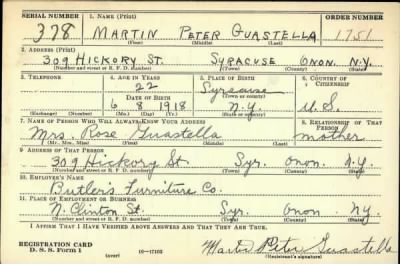 SERIAL NUMBER 1. NAME (Print) ORDER NUMBER
378 MARTIN PETER GUASTELLA 1751
(First) (Middle) (Last)
2. ADDRESS (Print)
309 HICKORY ST. SYRACUSE ONON. N.Y.
(Number and street or R. F. D. number) (Town) (County) (State)
3. TELEPHONE 4. AGE IN YEARS 5. PLACE OF BIRTH 6. COUNTRY OF CITIZENSHIP
22 Syracuse
DATE OF BIRTH (Town or county)
6 8 1918 N.Y. U.S.
(Exchange) (Number) (Mo.) (Day) (Yr.) (State or country)
7. NAME OF PERSON WHO WILL ALWAYS KNOW YOUR ADDRESS 8. RELATIONSHIP OF THAT PERSON
Mrs. Rose Guastella mother
(Mr., Mrs., Miss) (First) (Middle) (Last)
9. ADDRESS OF THAT PERSON
309 Hickory St. Syr. Onon. N.Y.
(Number and street or R. F. D. number) (Town) (County) (State)
10. EMPLOYER'S NAME
Butler's Furniture Co.
11. PLACE OF EMPLOYMENT OR BUSINESS
N. Clinton St. Syr. Onon NY.
(Number and street or R. F. D. number) (Town) (County) (State)
I AFFIRM THAT I HAVE VERIFIED ABOVE ANSWERS AND THAT THEY ARE TRUE.
REGISTRATION CARD
D. S. S. Form 1 (over) 16—17105 Martin Peter Guastella
(Registrant's signature)